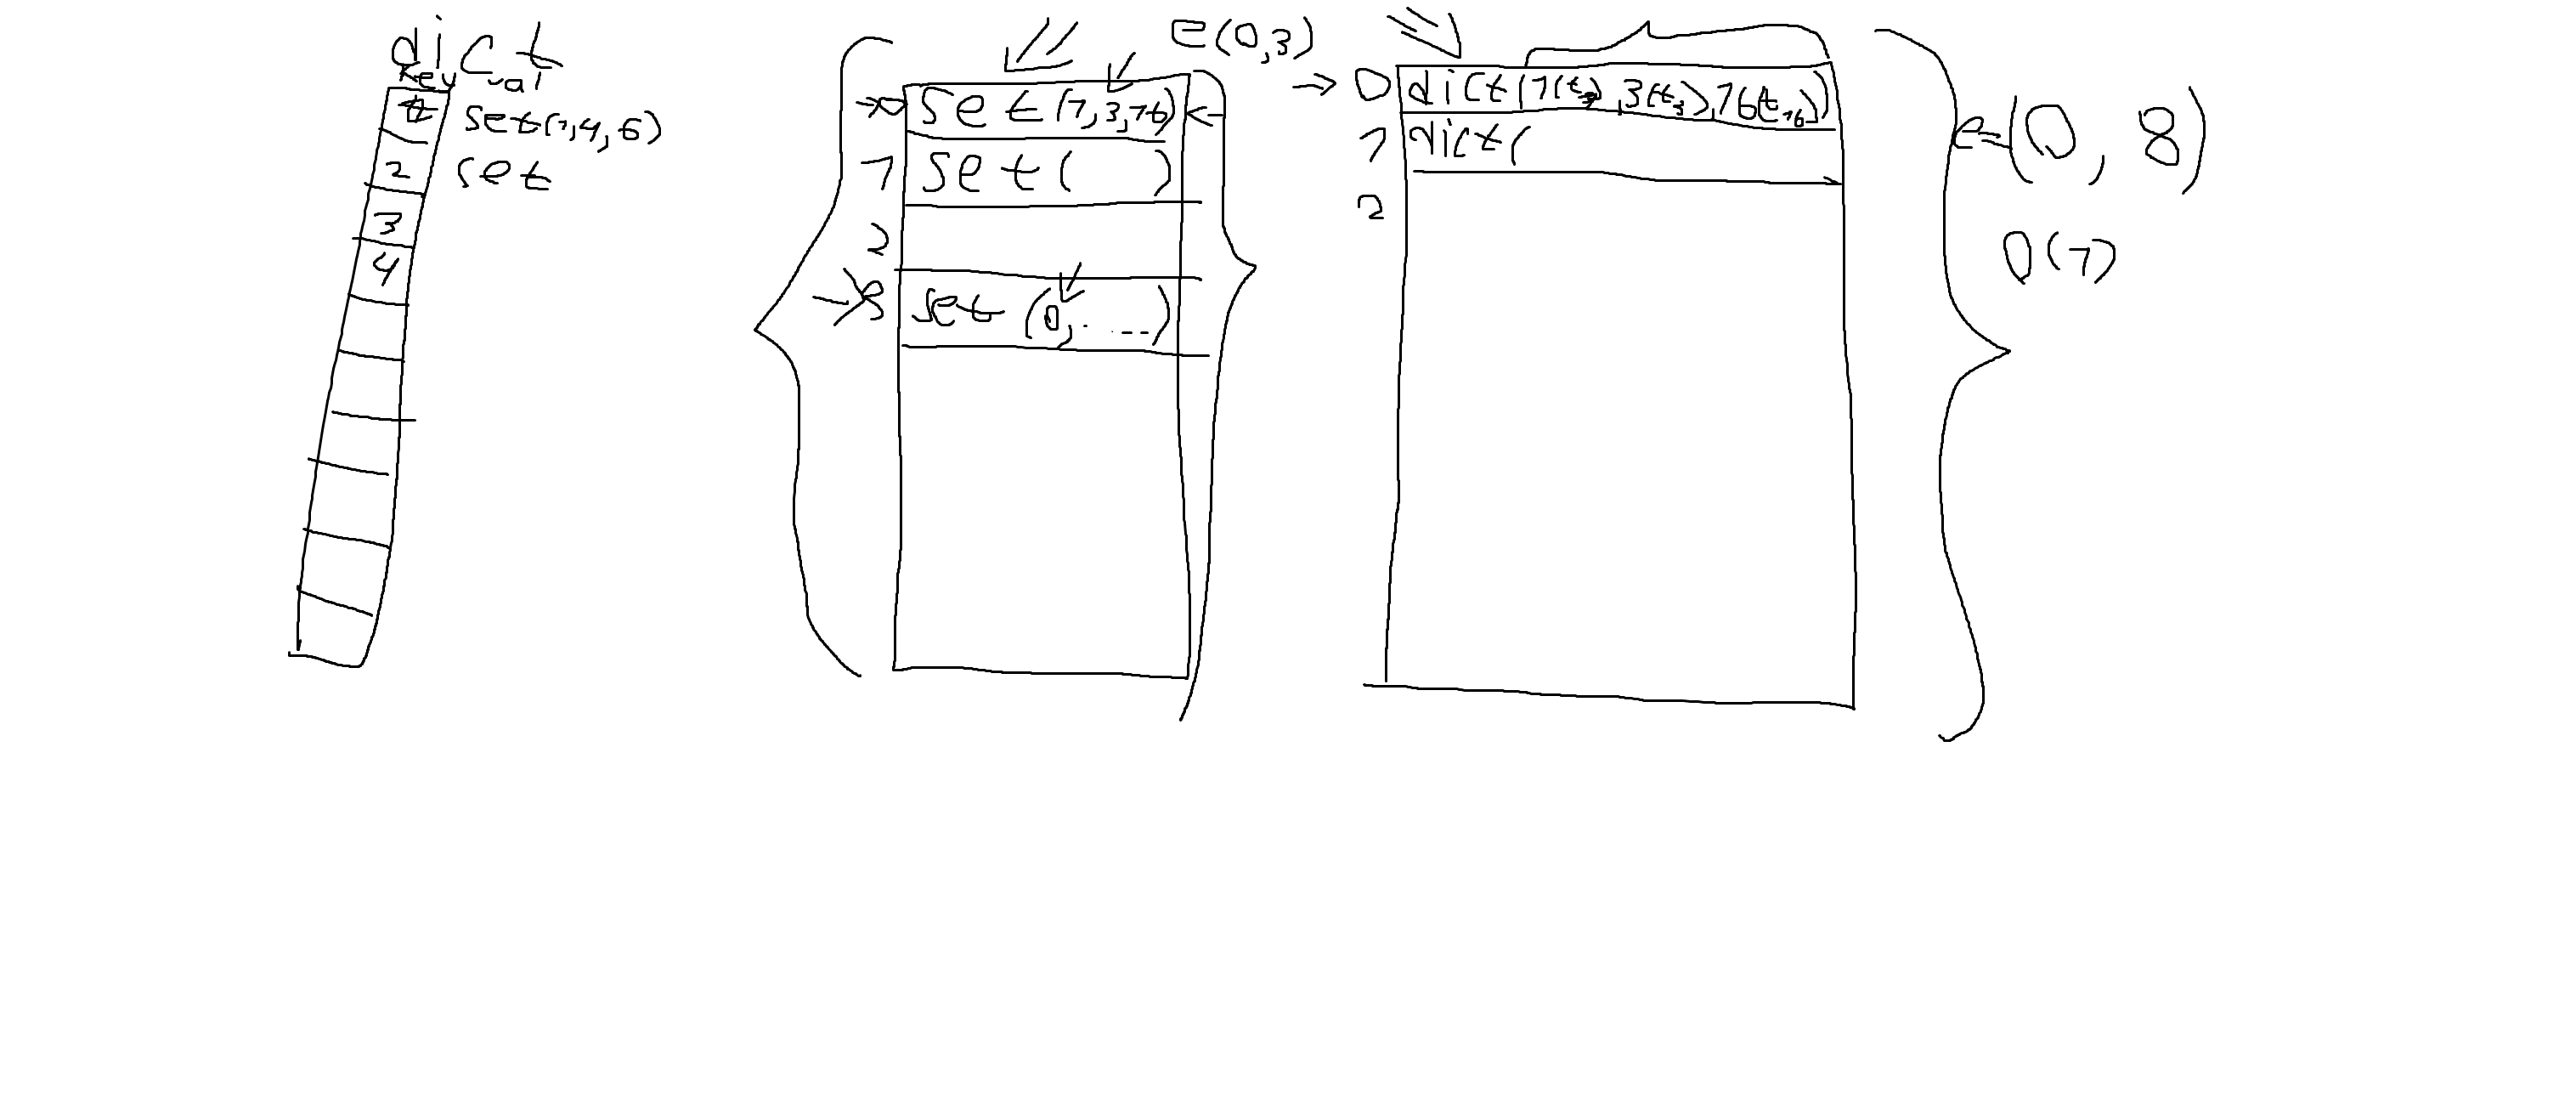 dict
key val
set(1,4,6)
2 set
3
4
e(0,3)
0 set(1,3,16)
1 set( )
2
8 set (0, . . . - -)
0 dict(1(t),3(t3),16(t16))
1 dict(
2
e=(0, 8)
O(1)